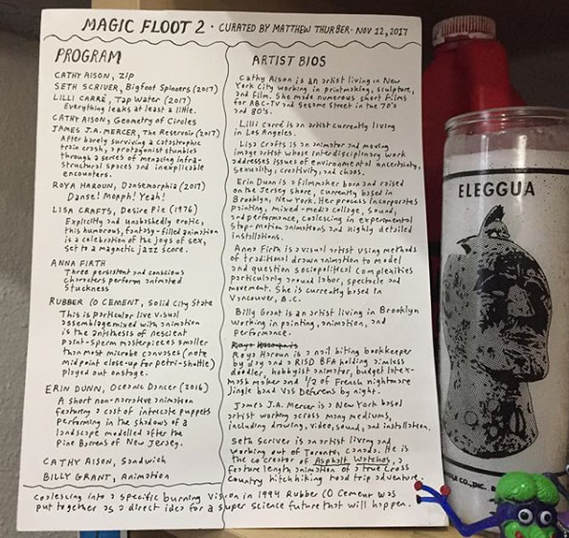 MAGIC FLOOT 2 • CURATED BY MATTHEW THURBER • NOV 12, 2017
PROGRAM
CATHY AISON, ZIP
SETH SCRIVER, Bigfoot Spinners (2017)
LILLI CARRÉ, Tap Water (2017)
Everything leaks at least a little.
CATHY AISON, Geometry of Circles
JAMES J.A. MERCER, The Reservoir (2017)
After barely surviving a catastrophic
train crash, a protagonist stumbles
through a series of menacing infra-
structural spaces and inexplicable
encounters.
ROYA HAROUN, Dansemorphia (2017)
Danse! Morph! Yeah!
LISA CRAFTS, Desire Pie (1976)
Explicitly and unabashedly erotic,
this humorous, fantasy-filled animation
is a celebration of the joys of sex,
set to a magnetic jazz score.
ANNA FIRTH
Three persistent and conscious
characters perform animated
stuckness
RUBBER (O CEMENT, Solid City State
This is particular live visual
assemblage mixed with animation
is the synthesis of nescient
paint-sperm masterpieces smaller
than most microbe canvases (note
midpoint close-up for petri-shuttle)
played out onstage.
ERIN DUNN, Oceanic Dancer (2016)
A short non-narrative animation
featuring a cast of intricate puppets
performing in the shadows of a
landscape modelled after the
Pine Barrens of New Jersey.
CATHY AISON, Sandwich
BILLY GRANT, Animation
ARTIST BIOS
Cathy Aison is an artist living in New
York City working in printmaking, sculpture,
and film. She made numerous short films
for ABC-TV and Sesame Street in the 70's
and 80's.
Lilli Carré is an artist currently living
in Los Angeles.
Lisa Crafts is an animator and moving
image artist whose interdisciplinary work
addresses issues of environmental uncertainty,
sexuality, creativity, and chaos.
Erin Dunn is a filmmaker born and raised
on the Jersey shore, currently based in
Brooklyn, New York. Her process incorporates
painting, mixed-media collage, sound,
and performance, coalescing in experimental
stop-motion animations and highly detailed
installations.
Anna Firth is a visual artist using methods
of traditional drawn animation to model
and question sociopolitical complexities
particularly around labor, spectacle and
movement. She is currently based in
Vancouver, B.C.
Billy Grant is an artist living in Brooklyn
working in painting, animation, and
performance.
Roya Haroun is a nail biting bookkeeper
by day and a RISD BFA holding aimless
doodler, hobbyist animator, budget latex-
mask maker and 1/2 of French nightmare
jingle band Vas Deferens by night.
James J.A. Mercer is a New York based
artist working across many mediums,
including drawing, video, sound, and installation.
Seth Scriver is an artist living and
working out of Toronto, Canada. He is
the co-creator of Asphalt Watches, a
feature length animation of a true cross
country hitchhiking road trip adventure.
Coalescing into a specific burning vision in 1994 Rubber (O Cement was
put together as a direct idea for a super science future that will happen.
ELEGGUA